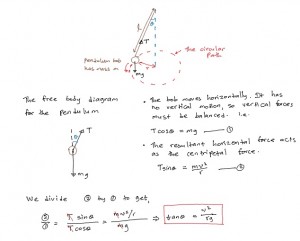 l
T
the circular path
pendulum bob
has mass m
r
mg
The free body diagram
for the pendulum
θ
T
mg
• The bob moves horizontally. It has
no vertical motion, so vertical forces
must be balanced. i.e.
Tcosθ = mg — ①
• The resultant horizontal force acts
as the centripetal force.
Tsinθ = mv²/r — ②
We divide ② by ① to get,
②/① = T sinθ / T cosθ = mv²/r / mg ⇒ tanθ = v²/rg